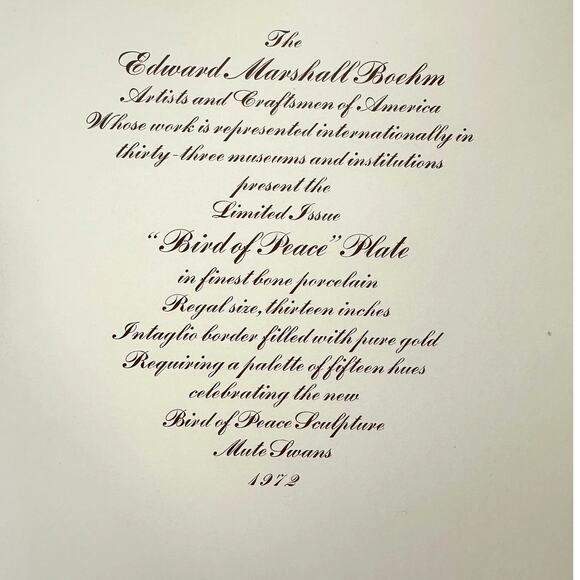 The
Edward Marshall Boehm
Artists and Craftsmen of America
Whose work is represented internationally in
thirty-three museums and institutions
present the
Limited Issue
“Bird of Peace” Plate
in finest bone porcelain
Regal size, thirteen inches
Intaglio border filled with pure gold
Requiring a palette of fifteen hues
celebrating the new
Bird of Peace Sculpture
Mute Swans
1972